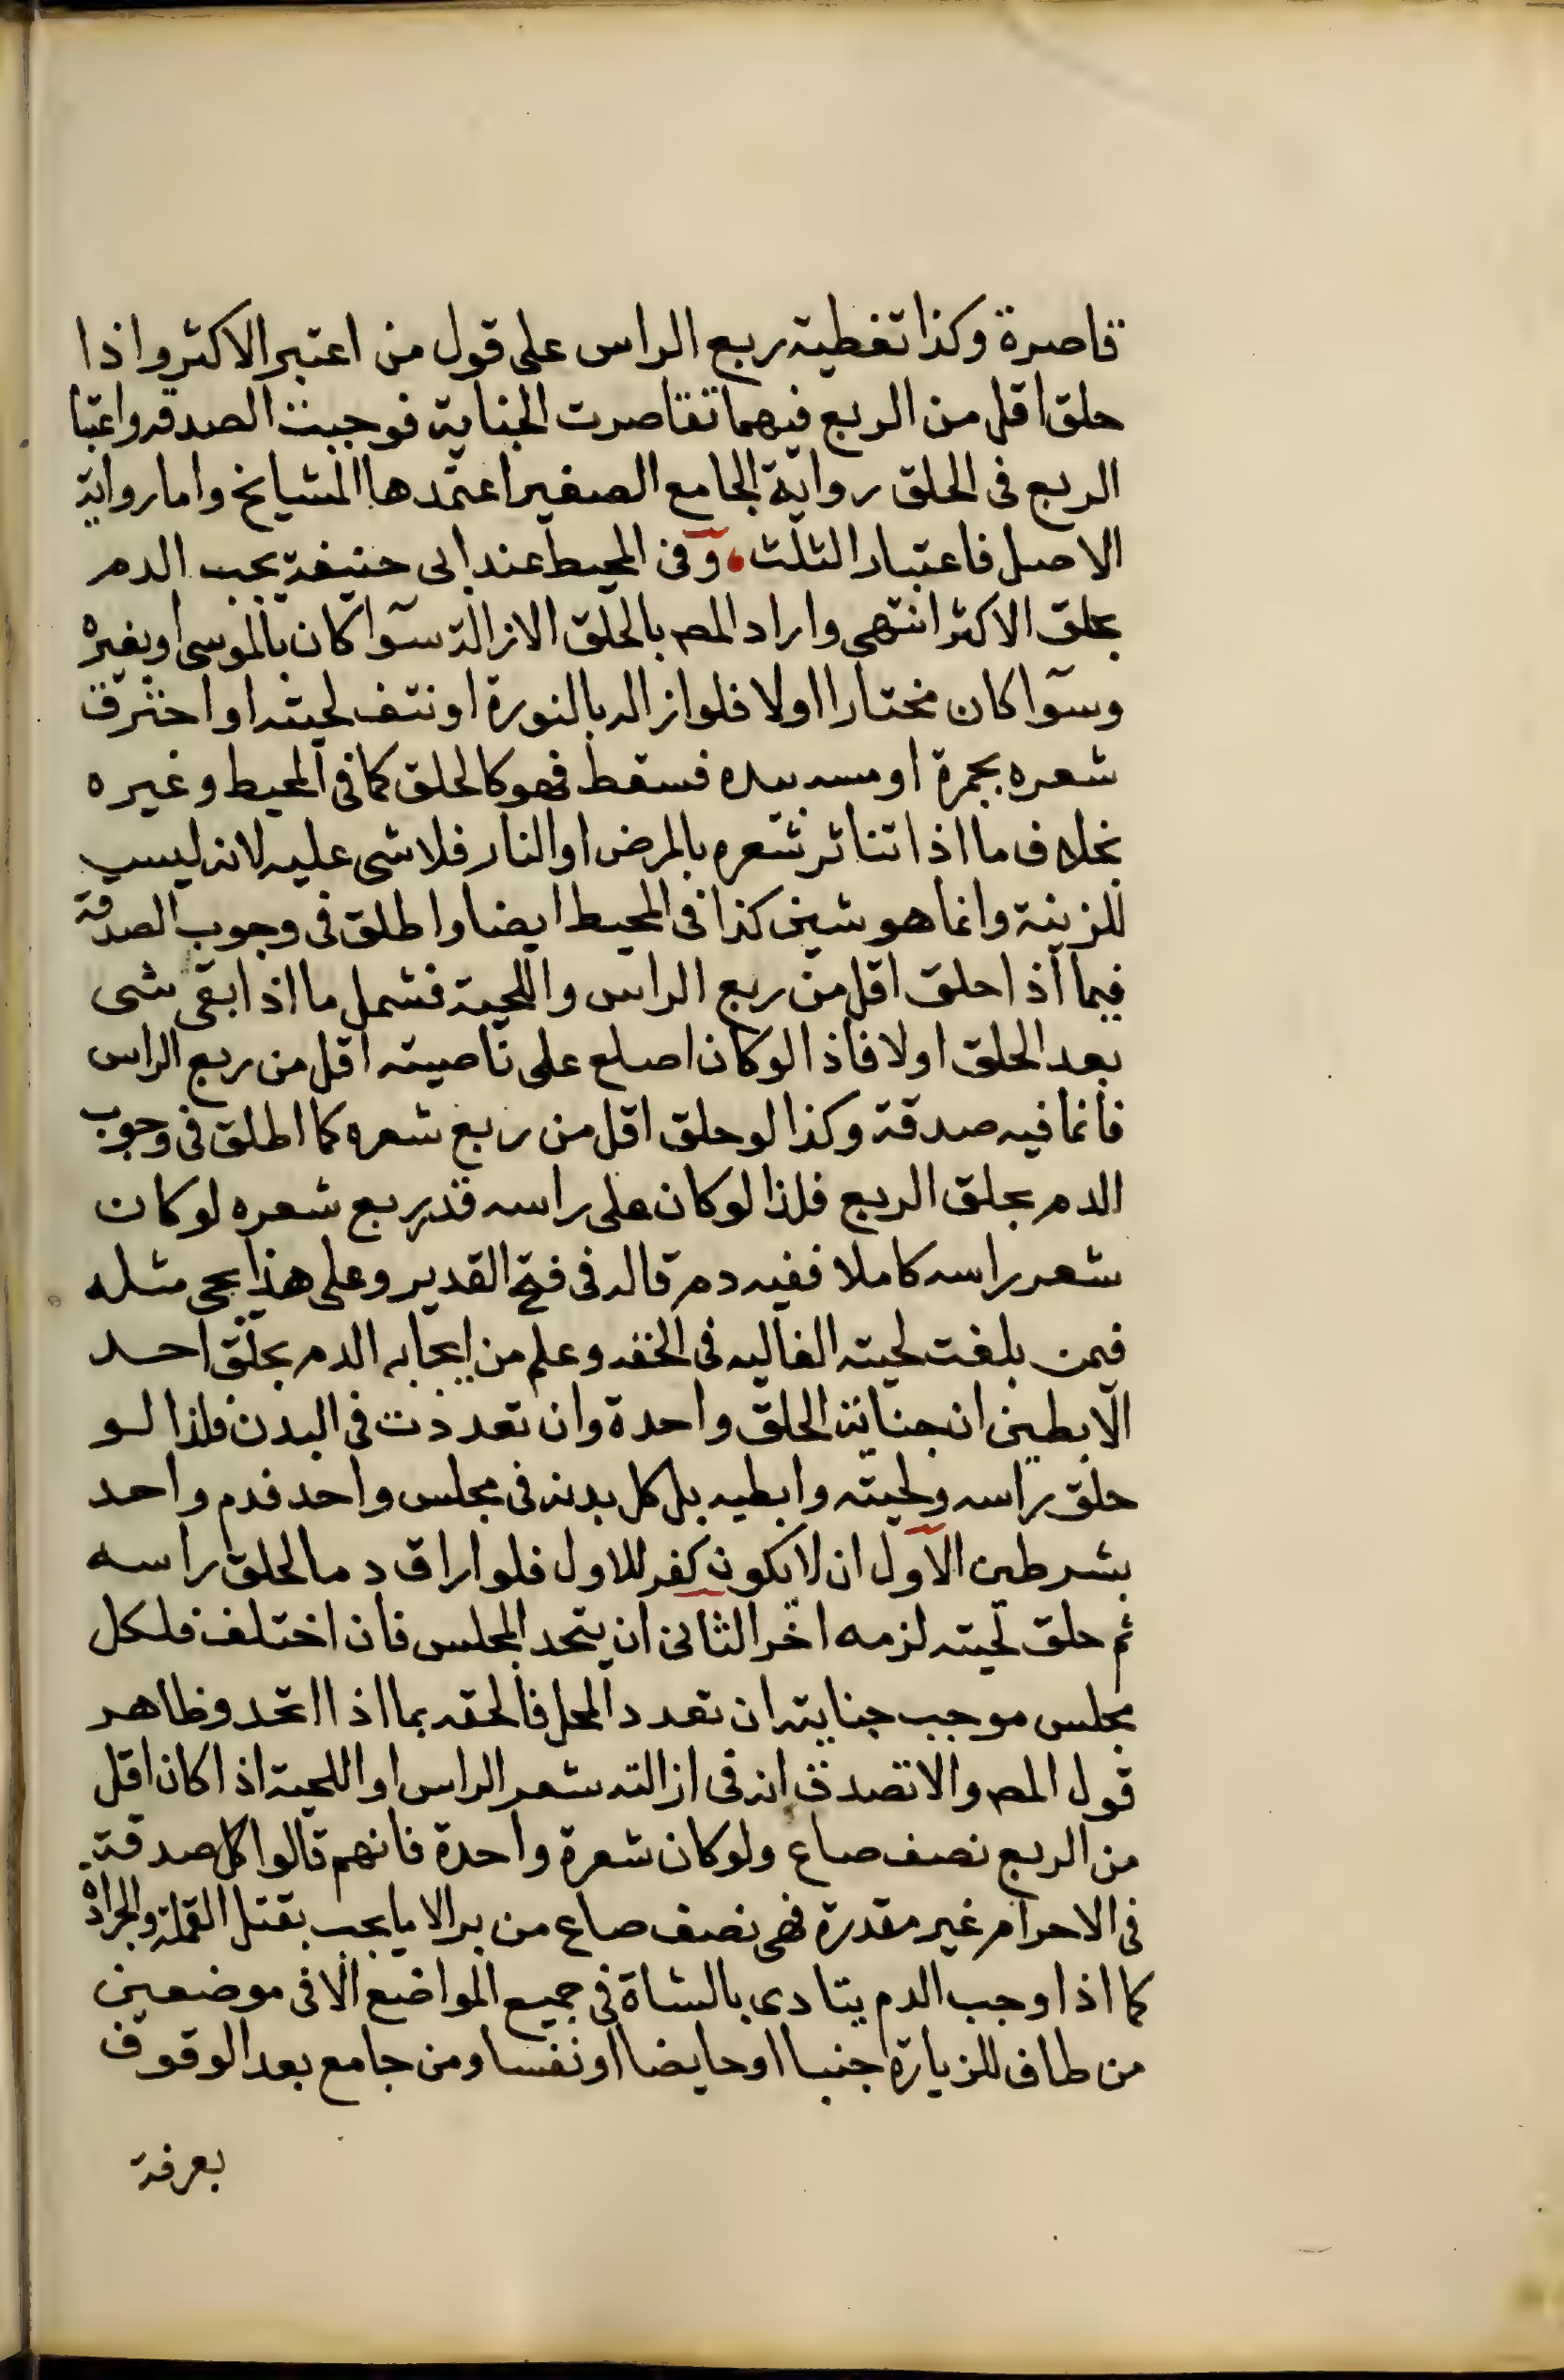 قاصرة وكذا تغطية ربع الراس على قول من اعتبر الاكثر واذا
حلق اقل من الربع فيهما تقاصرت الجناية فوجبت الصدقه واعتبا
الربع فى الحلق رواية الجامع الصغير اعتمدها المشايخ واما رواية
الاصل فاعتبار الثلث، وفى المحيط عند ابى حنيفة يجب الدم
بحلق الاكثر انتهى واراد المص بالحلق الازالة سوآ كان بالموسى او بغيره
وسوآ كان مختارا اولا فلو ازاله بالنورة او نتف لحيته او احترق
شعره بجمرة او مسه بيده فسقط فهو كالحلق كما فى المحيط وغيره
بخلاف ما اذا تناثر شعره بالمرض او النار فلا شى عليه لانه ليس
للزينة وانما هو شين كذا فى المحيط ايضا واطلق فى وجوب الصدقة
فيما اذا حلق اقل من ربع الراس واللحية فشمل ما اذا بقى شى
بعد الحلق اولا فاذا لو كان اصلع على ناصيته اقل من ربع الراس
فانما فيه صدقة وكذا لو حلق اقل من ربع شعره كما اطلق فى وجوب
الدم بحلق الربع فلذا لو كان على راسه قدر ربع شعره لو كان
شعر راسه كاملا ففيه دم قاله فى فتح القدير وعلى هذا يجى مثله
فيمن بلغت لحيته الغاليه فى الخفه وعلم من ايجابه الدم بحلق احد
الابطين ان جناية الحلق واحدة وان تعددت فى البدن فلذا لو
حلق راسه ولحيته وابطيه بل كل بدنه فى مجلس واحد فدم واحد
بشرطين الآول ان لا يكون كفر للاول فلو اراق دما لحلق راسه
ثم حلق لحيته لزمه اخر الثانى ان يتحد المجلس فان اختلف فلكل
مجلس موجب جنايته ان تعدد المحل فالحقه بما اذا اتحد وظاهر
قول المص والا تصدق انه فى ازالته شعر الراس او اللحية اذا كان اقل
من الربع نصف صاع ولو كان شعرة واحدة فانهم قالوا كل صدقة
فى الاحرام غير مقدرة فهى نصف صاع من بر الا ما يجب بقتل القملة والجرادة
كما اذا وجب الدم يتادى بالشاة فى جميع المواضع الا فى موضعين
من طاف للزيارة جنبا او حايضا او نفسا ومن جامع بعد الوقوف
بعرفة